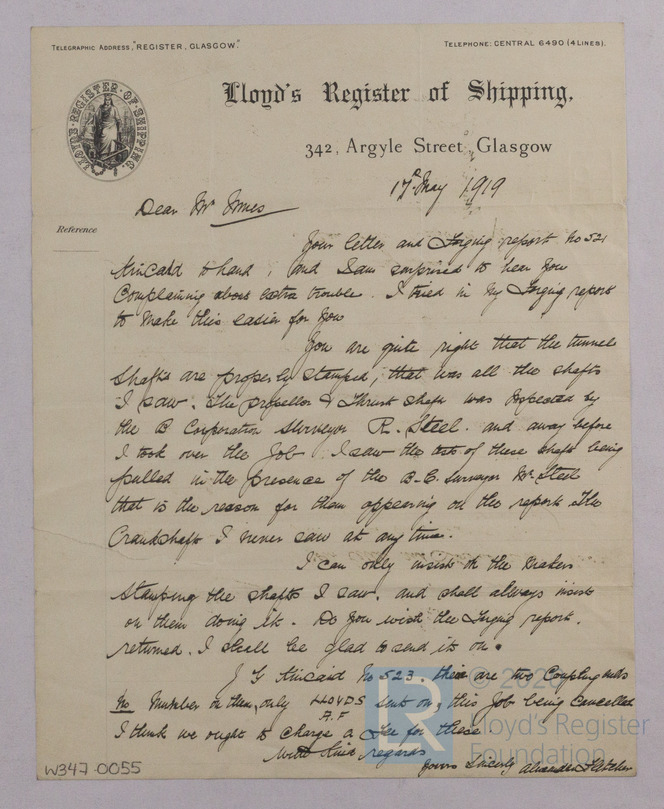 Telegraphic Address, "Register, Glasgow."
Telephone: Central 6490 (4 Lines).
LLOYD'S REGISTER OF SHIPPING.
Lloyd's Register of Shipping,
342, Argyle Street, Glasgow
17th May 1919
Dear Mr Innes
Reference
Your letter and Forging report No 521
Kincaid to hand, and I am surprised to hear you
Complaining about extra trouble. I tried in my Forging report
to make this easier for you
You are quite right that the tunnel
shafts are properly stamped, that was all the shafts
I saw. The propellor & Thrust shaft was inspected by
the B Corporation Surveyor R. Steel. and away before
I took over the Job. I saw the test of these shafts being
pulled in the presence of the B.C. Surveyor Mr Steel
that is the reason for them appearing on the report. The
Crankshaft I never saw at any time.
I can only insist on the makers
stamping the shafts I saw. and shall always insist
on them doing it. Do you wish the Forging report.
returned. I shall be glad to send it on.
J G Kincaid No 523. there are two Coupling
no Number on them, only LLOYDS sent on, this Job being Cancelled
A.F
I think we ought to charge a Fee for these
with kind regards
Yours Sincerely Alexander Fletcher
W347-0055
© 2020
Lloyd's Register
Foundation